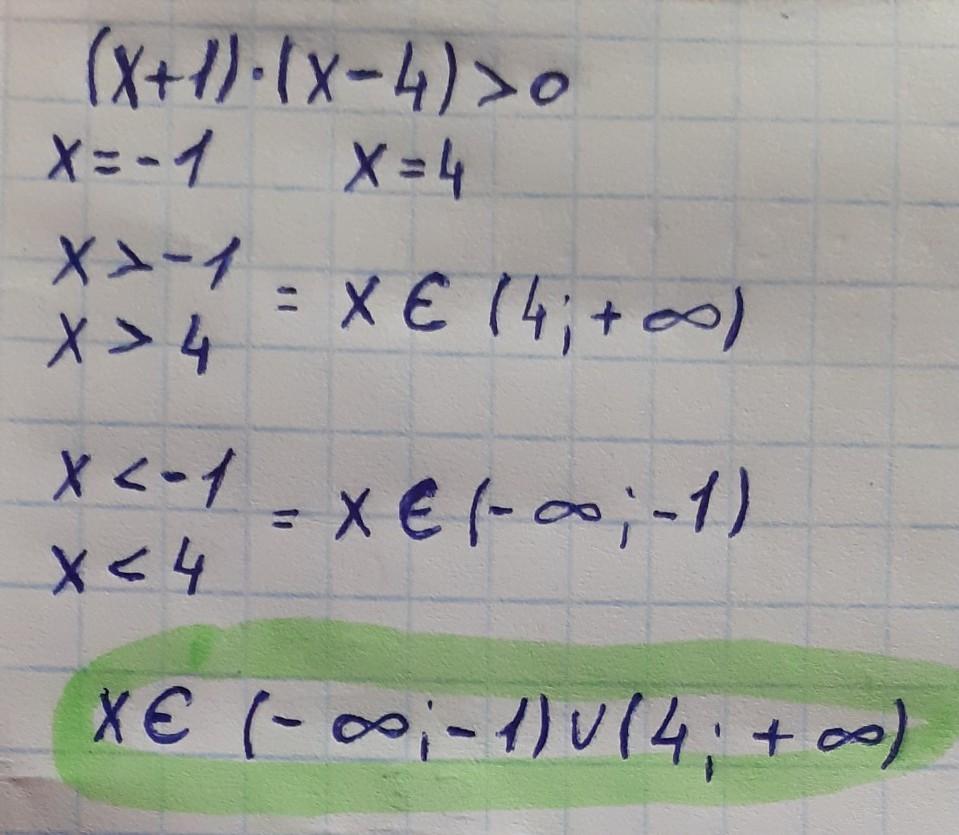 (x+1)·(x-4)>0
x=-1 x=4
x>-1
x>4
= x∈(4;+∞)
x<-1
x<4
= x∈(-∞;-1)
x∈ (-∞;-1)∪(4;+∞)